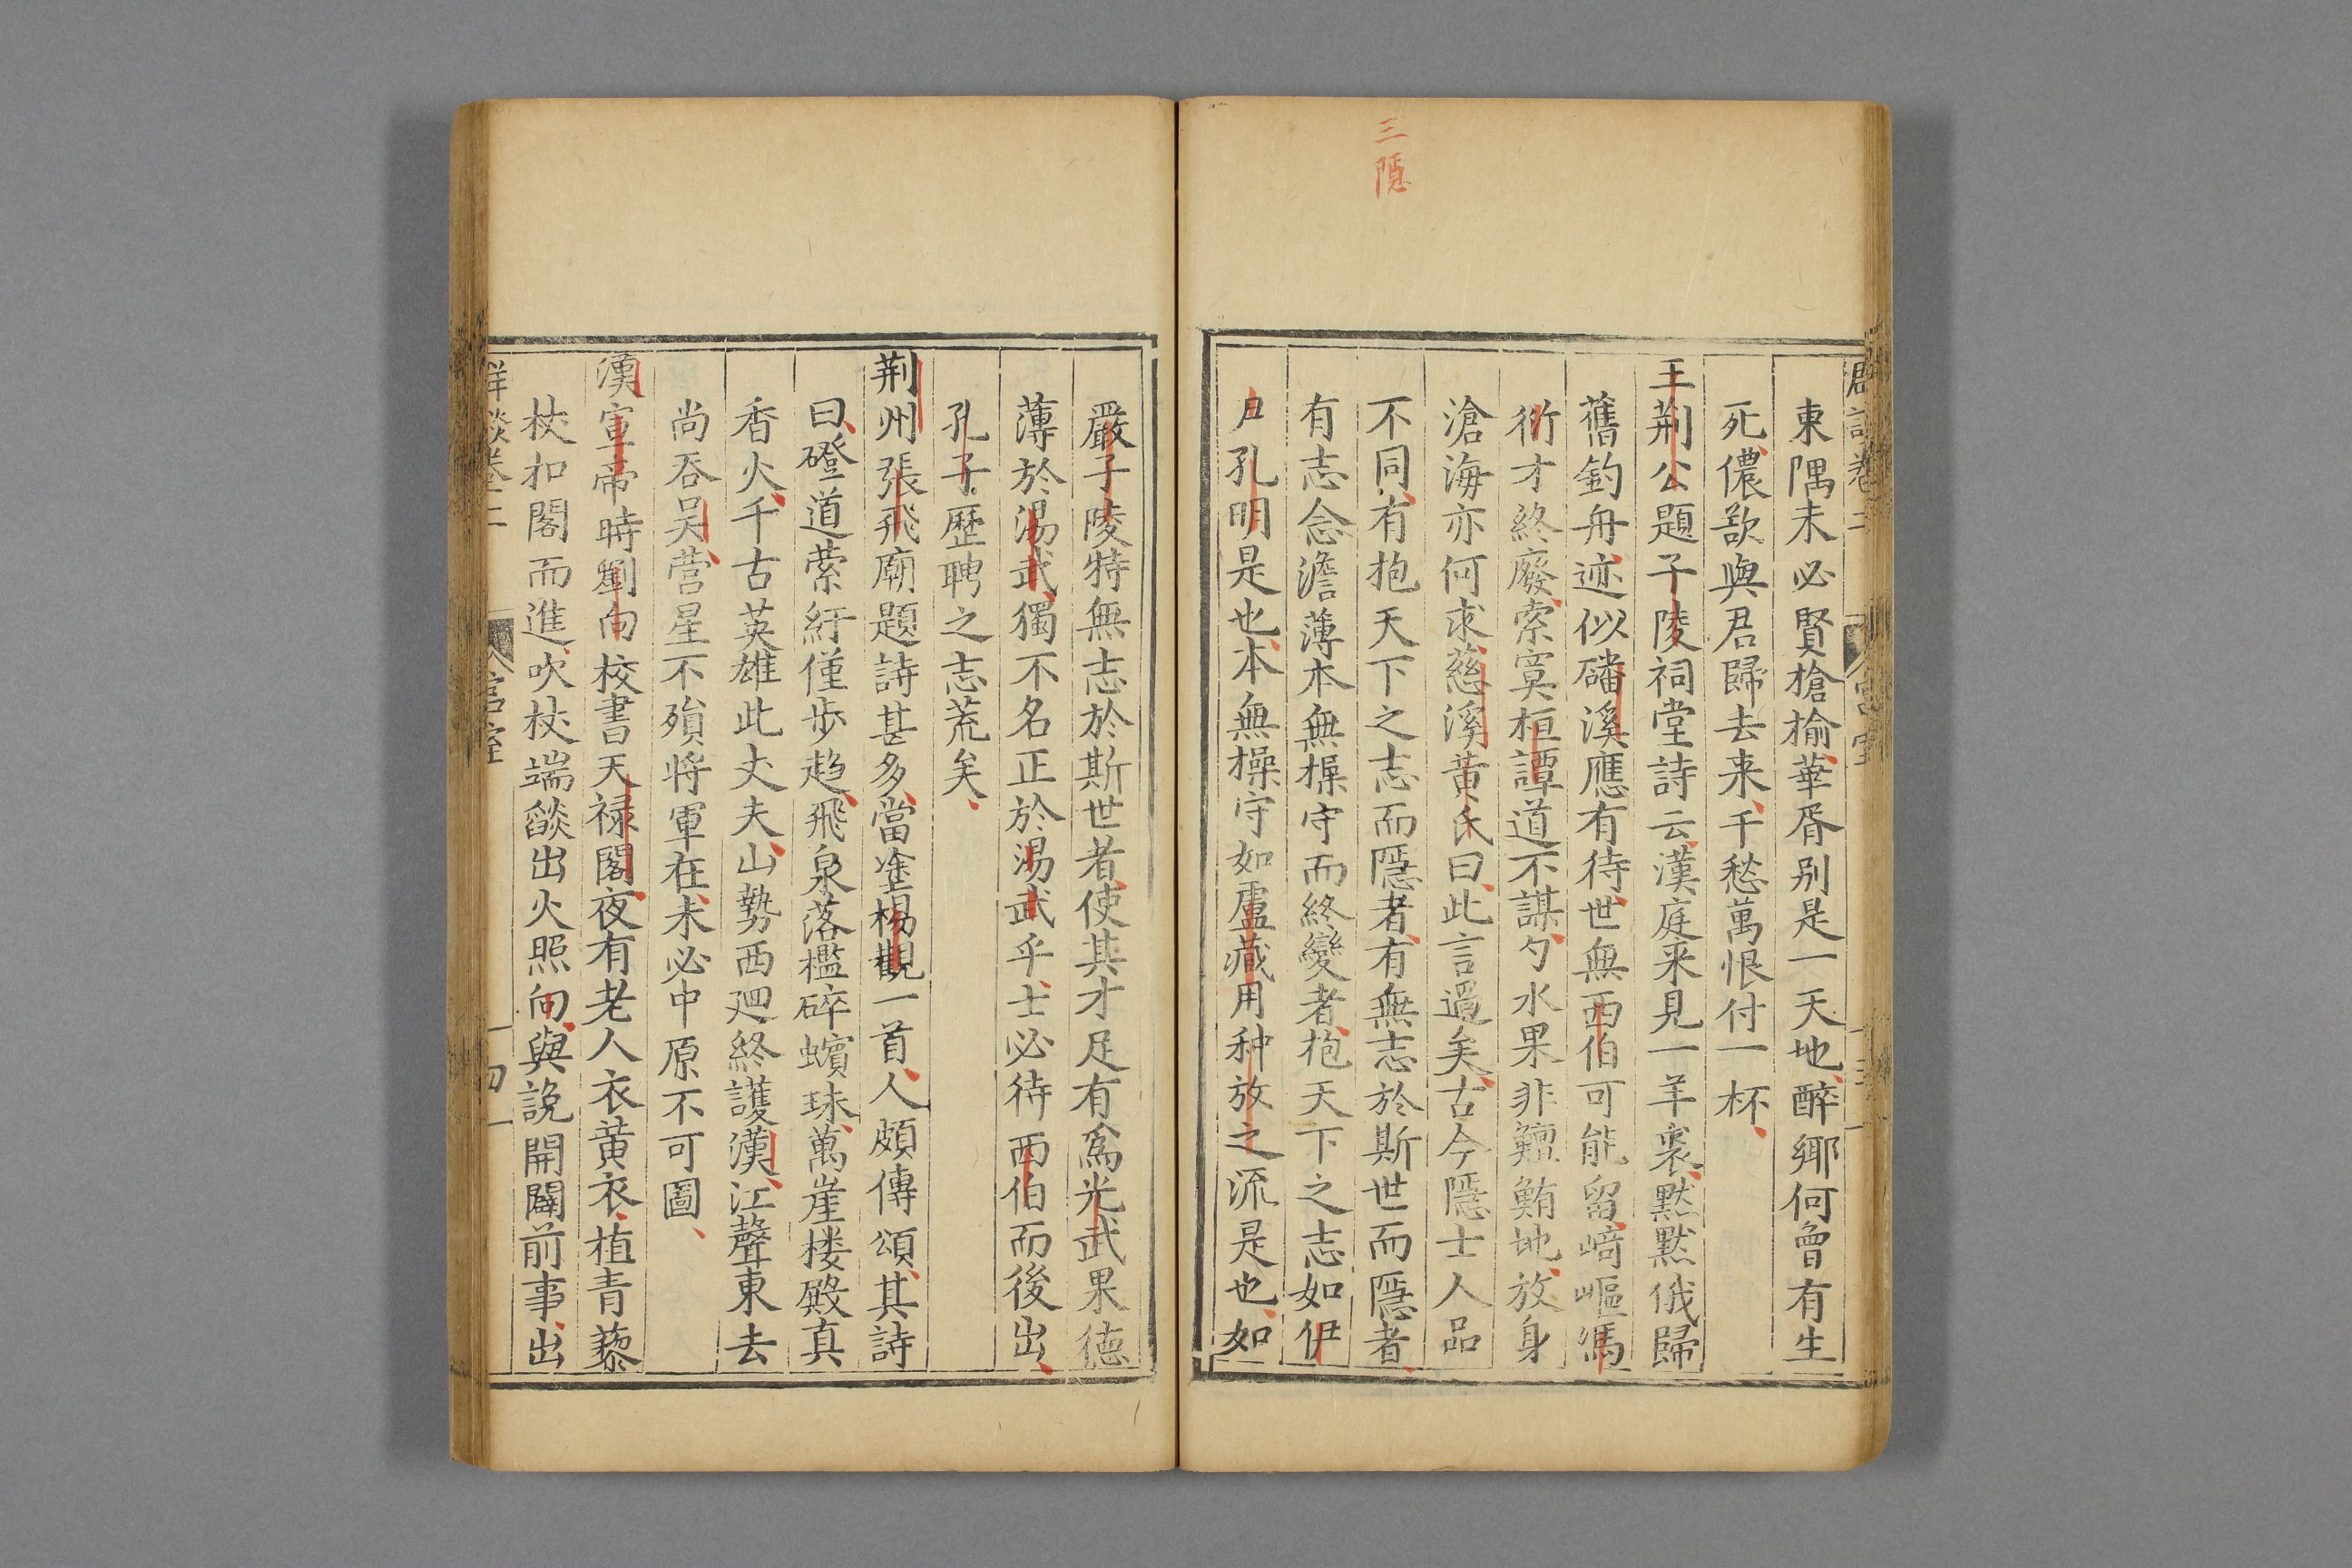 三隱
東隅未必賢槍榆華胥别是一天地醉鄉何曾有生
死儂欲與君歸去来千愁萬恨付一杯
王荆公題子陵祠堂詩云漢庭来見一羊裘黙黙俄歸
舊釣舟迹似磻溪應有待世無西伯可能留﨑嶇馮
衍才終廢索寞桓譚道不謀勺水果非鱣鮪地放身
滄海亦何求慈溪黄氏曰此言過矣古今隱士人品
不同有抱天下之志而隱者有無志於斯世而隱者
有志念澹薄本無操守而終變者抱天下之志如伊
尸孔明是也本無操守如盧藏用种放之流是也如
嚴子陵特無志於斯世者使其才足有爲光武果德
薄於湯武獨不名正於湯武乎士必待西伯而後出
孔子歷聘之志荒矣
荆州張飛廟題詩甚多當塗楊觀一首人頗傳頌其詩
曰磴道縈紆僅步趋飛泉落檻碎蠙珠萬崖楼殿真
香火千古英雄此丈夫山勢西廻終護漢江聲東去
尚吞吴營星不殞将軍在未必中原不可圖
漢宣帝時劉向校書天禄閣夜有老人衣黄衣植青藜
杖扣閣而進吹杖端燄出火照向與說開闢前事出